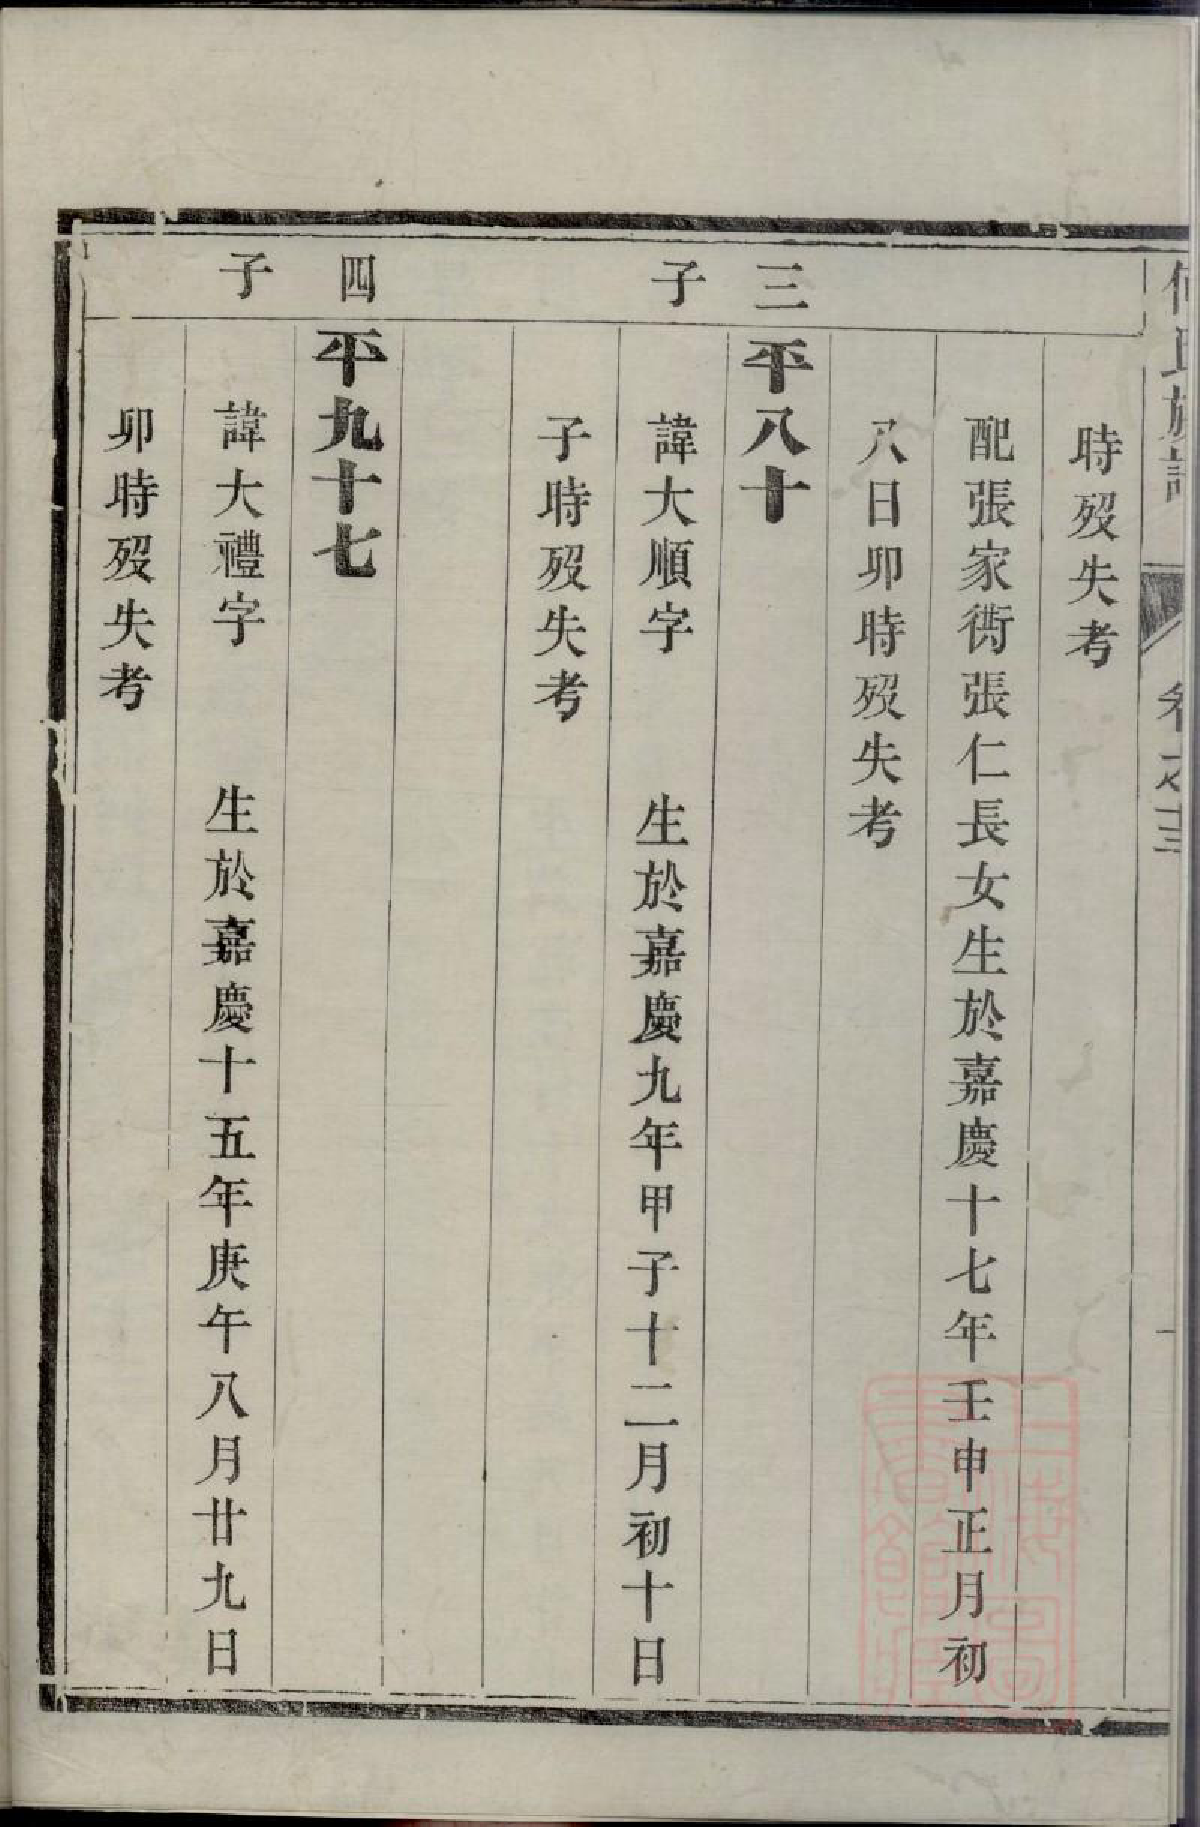 何氏族譜
卷之十三
時殁失考
配張家衖張仁長女生於嘉慶十七年壬申正月初
八日卯時殁失考
三子
平八十
諱大順字　生於嘉慶九年甲子十二月初十日
子時殁失考
四子
平九十七
諱大禮字　生於嘉慶十五年庚午八月廿九日
卯時殁失考